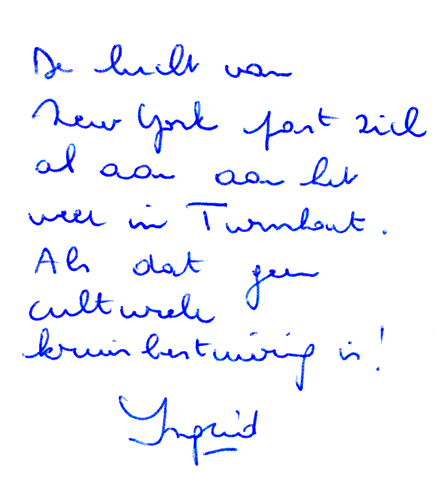 De lucht van
New York past zich
al aan aan het
weer in Turnhout.
Als dat geen
culturele
kruisbestuiving is!
Ingrid